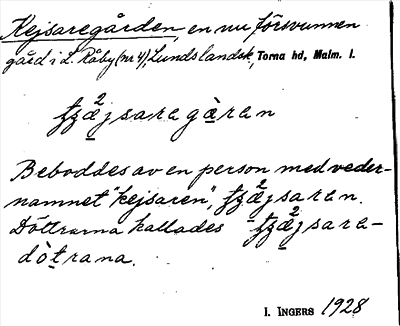 Kejsaregården, en nu försvunnen
gård i L. Råby (nr 4), Lunds landsk, Torna hd, Malm. l.
2
ҭʑæjsaragàran
Beboddes av en person med veder-
namnet "kejsaren", ҭʑæ²jsaran.
Döttrarna kallades ҭʑæ²jsara-
dòtrana.
I. INGERS 1928